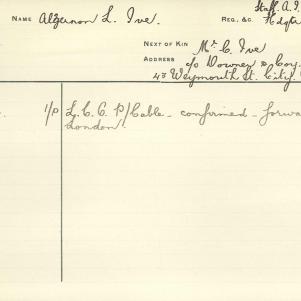 Staff. A.I.
NAME Algernon L. Ive. REG., &C. Hdqtr
NEXT OF KIN Mr C. Ive
ADDRESS c/o Downey & Coy.
43 Weymouth St. City.
1/P L.C.C. P/Cable - confirmed - forwa
London.